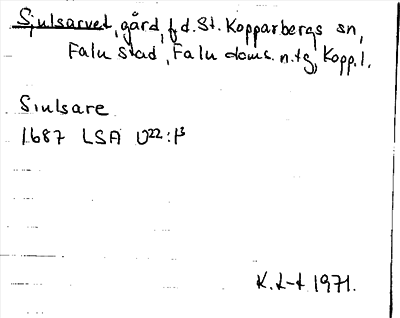 Sjulsarvet, gård, f.d. St. Kopparbergs sn,
Falu stad, Falu doms. n. tg, Kopp. l.
Siulsare
1687 LSA U22:
K. L-t 1971.